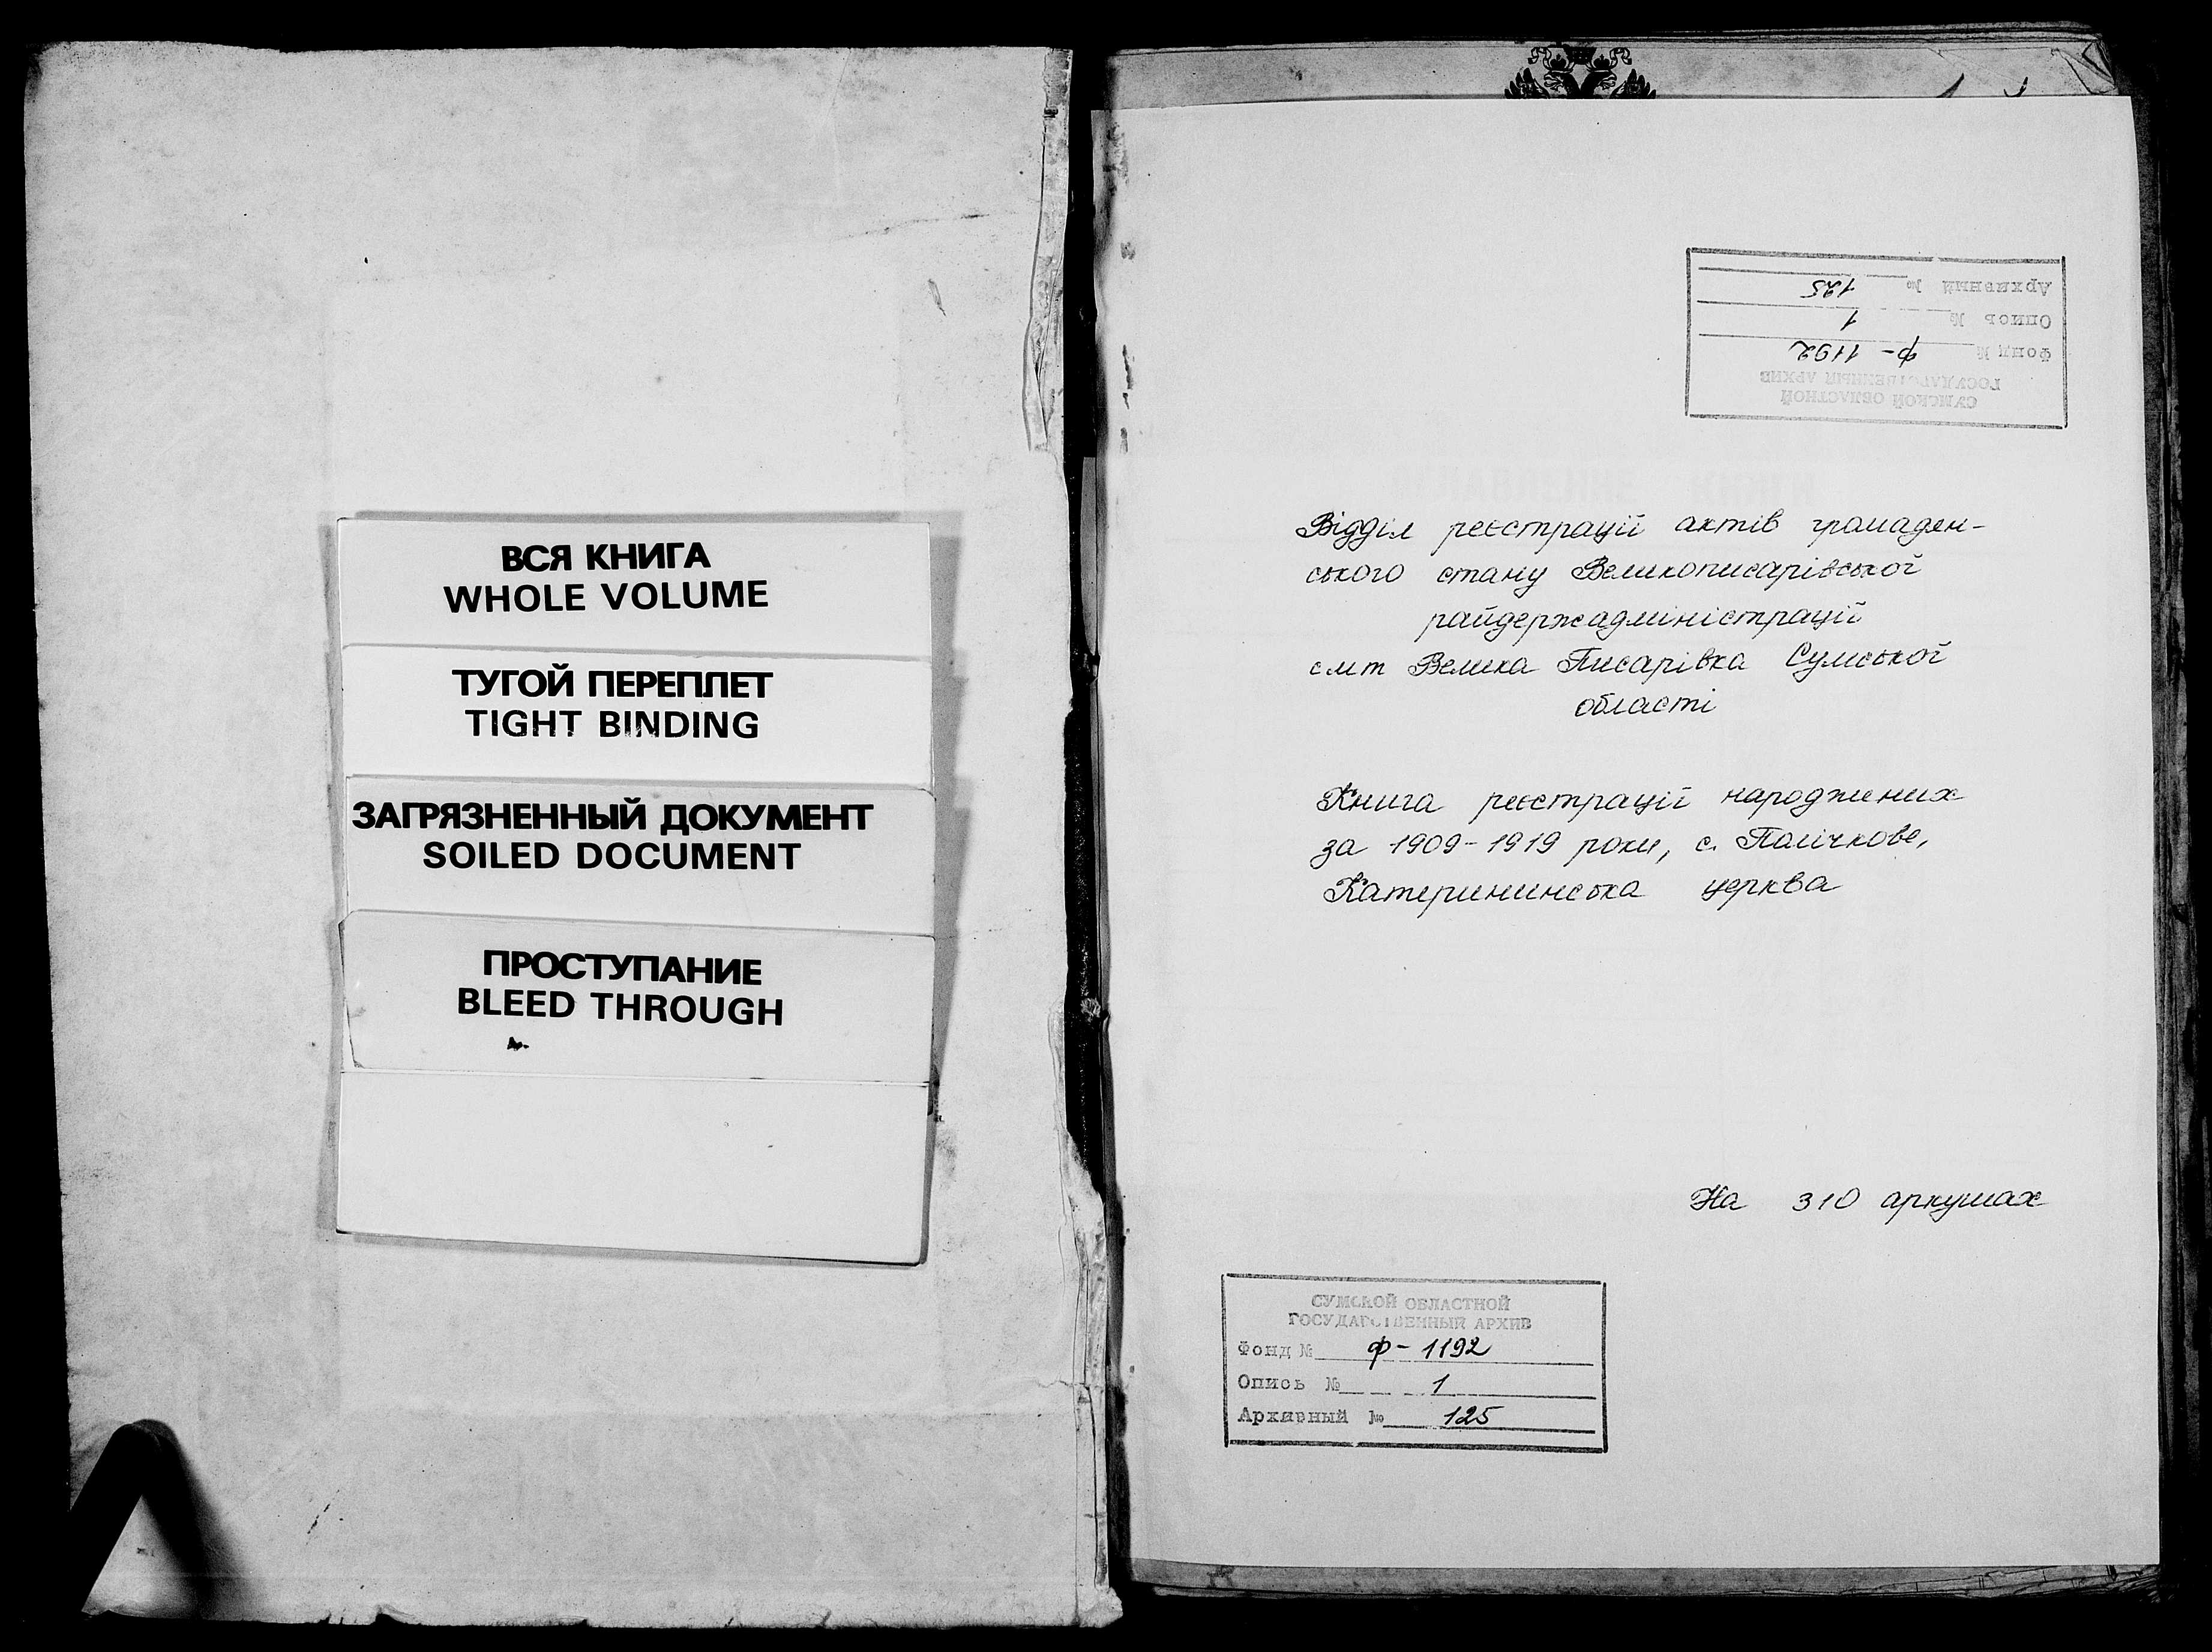 ВСЯ КНИГА
WHOLE VOLUME
ТУГОЙ ПЕРЕПЛЕТ
TIGHT BINDING
ЗАГРЯЗНЕННЫЙ ДОКУМЕНТ
SOILED DOCUMENT
ПРОСТУПАНИЕ
BLEED THROUGH
Архивный № 125
Опись № 1
Фонд № ф- 1192
ГОСУДАРСТВЕННЫЙ АРХИВ
СУМСКОЙ ОБЛАСТНОЙ
Відділ реєстрації актів громаден-
ського стану Великописарівської
райдержадміністрації
смт Велика Писарівка Сумської
області
Книга реєстрації народжених
за 1909-1919 роки, с. Поличкове,
Катерининська церква
На 310 аркушах
СУМСКОЙ ОБЛАСТНОЙ
ГОСУДАРСТВЕННЫЙ АРХИВ
Фонд № ф- 1192
Опись № 1
Архивный № 125